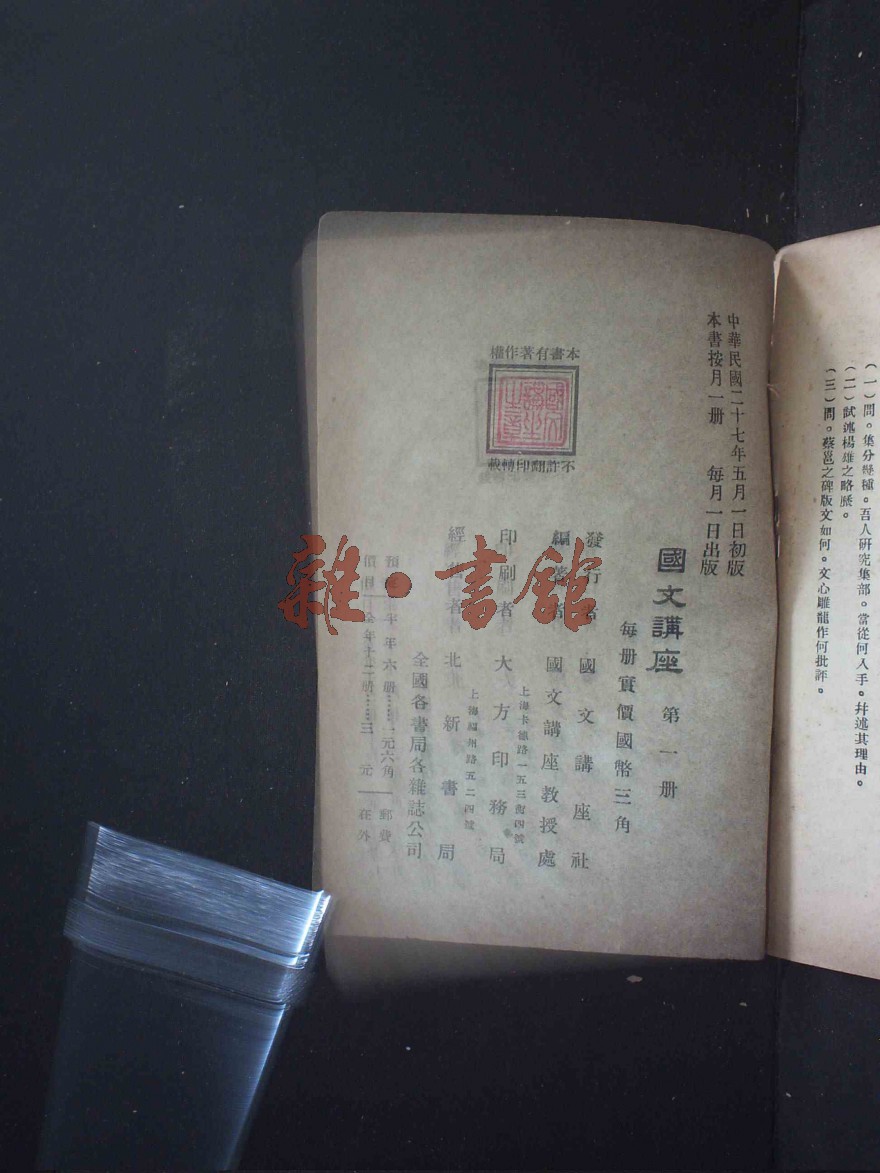 （一）問。集分幾種。吾人研究集部。當從何入手。幷述其理由。
（二）試述楊雄之略歷。
（三）問。蔡邕之碑版文如何。文心雕龍作何批評。
中華民國二十七年五月一日初版
本書按月一册　每月一日出版
國文講座　第一册
每册實價國幣三角
發行者　國文講座社
編著者　國文講座教授處
上海卡德路一五三街四號
印刷者　大方印務局
上海福州路五二四號
經售者　北新書局
全國各書局各雜誌公司
半年六册……一元六角　郵費
價目　全年十二册……三　元　在外
本書有著作權
國文講座社之章
不許翻印轉載
雜·書館